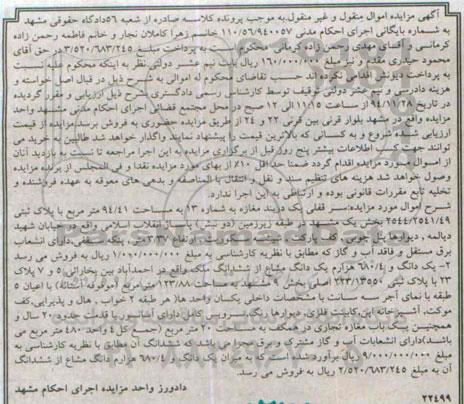 آگهی مزایده اموال منقول و غیر منقول.به موجب پرونده کلاسه صادره از شعبه ۵۶دادگاه حقوقی مشهد
به شماره بایگانی اجرای احکام مدنی ۱۱۰/۵۶/۹۴۰۰۵۷ خانم زهرا کاملان نجار و خانم فاطمه رحمن زاده
کرمانی و آقای مهدی رحمن زاده کرمانی محکوم است به پرداخت مبلغ ۳/۵۲۰/۶۸۳/۲۴۵ ریال در حق آقای
محمود حیدری مقدم و نیز مبلغ ۱۶۰/۰۰۰/۰۰۰ ریال بابت نیم عشر دولتی نظر به اینکه محکوم علیه نسبت
به پرداخت دیونش اقدامی نکرده اند حسب تقاضای محکوم له اموالی به شرح ذیل در قبال اصل خواسته و
هزینه دادرسی و نیم عشر دولتی توقیف توسط کارشناس رسمی دادگستری به شرح ذیل ارزیابی و مقرر گردیده
در تاریخ ۹۴/۱۱/۲۸ از ساعت ۱۱/۱۵ الی ۱۲ صبح در محل مجتمع قضائی اجرای احکام مدنی مشهد واحد
مزایده واقع در مشهد بلوار قرنی بین قرنی ۲۲ و ۲۴ از طریق مزایده حضوری به فروش برسد.مزایده از قیمت
ارزیابی شده شروع و به کسانی که بالاترین قیمت را پیشنهاد نمایند واگذار خواهد شد. طالبین به خرید می
توانند جهت کسب اطلاعات بیشتر پنج روز قبل از برگزاری مزایده به این اجرا مراجعه تا نسبت به بازدید آنان
از اموال مورد مزایده اقدام گردد ضمنا حداقل ۱۰٪ از بهای مورد مزایده نقدا و فی المجلس از برنده مزایده
وصول خواهد شد هزینه های تنظیم سند و نقل و انتقال بالمناصفه و بدهی های معوقه به عهده فروشنده و
تخلیه تابع مقررات قانونی بوده و ارتباطی به این اجرا ندارد.
شرح اموال مورد مزایده: سر قفلی یک دربند مغازه به شماره ۱۳ به مساحت ۹۴/۴۱ متر مربع با پلاک ثبتی
۲۵۴۴/۲۵۴۱/۴۹ بخش یک مشهد در طبقه زیرزمین (دو نبش) پاساژ انقلاب اسلامی واقع در خیابان شهید
دیالمه , دیوارها پنل چوبی، کف پارکت ارتفاع ۳/۲۷ متر، پنکه سقفی،دارای انشعاب
برق مستقل و فاقد آب و گاز که مطابق با نظریه کارشناسی به مبلغ ۱/۰۰۰/۰۰۰/۰۰۰ ریال به فروش می رسد
۲- یک دانگ و ۶۸۰/۴ هزارم یک دانگ مشاع از ششدانگ ملک واقع در احمدآباد بین بخارائی ۵ و ۷ پلاک
۲۳ با پلاک ثبتی اصلی بخش ۹ مشهد به مساحت ۱۲۳/۸۸ مترمربع (موقوفه آستانه) با اعیان ۵
طبقه با نمای آجر سه سانت با مشخصات داخلی یکسان واحد ها( هر طبقه ۲ خواب , هال و پذیرایی,کف
موکت، آشپزخانه اپن،کابینت فلزی، دیوارها رنگ،سرویس کامل دارای آسانسور با قدمت حدود ۲۰ سال و
همچنین یک باب مغازه تجاری در همکف به مساحت ۲۰ متر مربع (جمع کل ۴ واحد ۴۸۰ متر مربع می
باشد)دارای انشعابات آب و گاز مشترک و برق مجزا می باشد که ششدانگ آن مطابق با نظریه کارشناسی به
مبلغ ۹/۰۰۰/۰۰۰/۰۰۰ ریال برآورد شده است که به میزان یک دانگ و ۶۸۰/۴ هزارم دانگ مشاع از ششدانگ
آن به مبلغ ۲/۵۲۰/۶۸۳/۲۴۵ ریال به فروش می رسد.
دادورز واحد مزایده اجرای احکام مشهد
۲۲۴۹۹